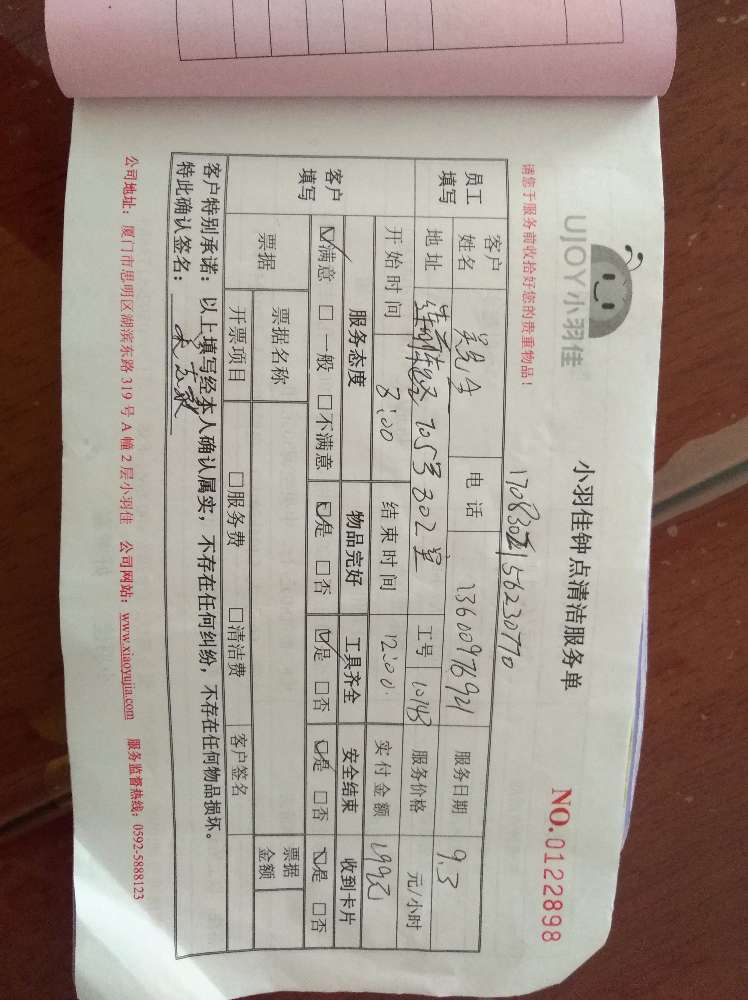 UJOY小羽佳
小羽佳钟点清洁服务单
NO.0122898
请您于服务前收拾好您的贵重物品!
员工填写
客户姓名
电话 13600976921
服务日期 9.3
地址 705号302室
工号 10143
服务价格 元/小时
开始时间 8:00
结束时间 12:00
实付金额
客户填写
服务态度 物品完好 工具齐全 安全结束 收到卡片
☑满意 □一般 □不满意 ☑是 □否 ☑是 □否 ☑是 □否 ☑是 □否
票据 票据名称 票据金额
开票项目 □服务费 □清洁费 客户签名
客户特别承诺:以上填写经本人确认属实,不存在任何纠纷,不存在任何物品损坏。
特此确认签名:
公司地址:厦门市思明区湖滨东路319号A幢2层小羽佳 公司网站:www.xiaoyujia.com 服务监督热线:0592-5888123